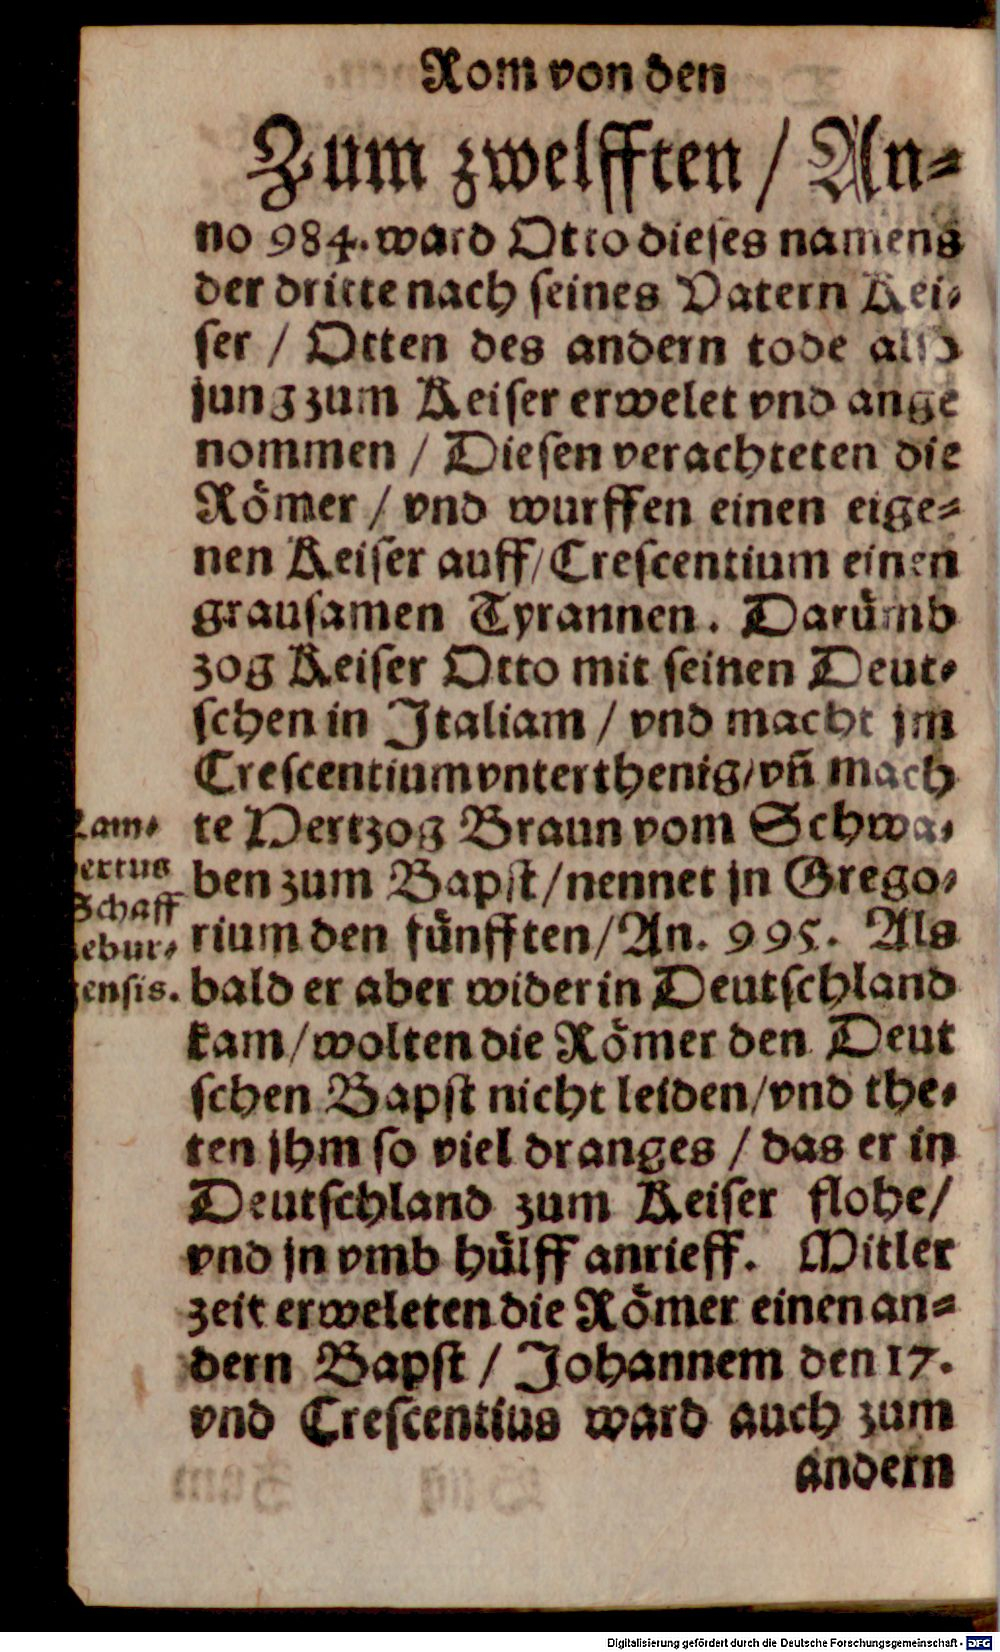 Rom von den
Zum zwelfften / An-
no 984. ward Otto dieses namens
der dritte nach seines Vatern Kei-
ser / Otten des andern tode also
jung zum Keiser erwelet vnd ange
nommen / Diesen verachteten die
Römer / vnd wurffen einen eige-
nen Keiser auff / Crescentium einen
grausamen Tyrannen. Darümb
zog Keiser Otto mit seinen Deut-
schen in Italiam / vnd macht jm
Crescentium vnterthenig / vñ mach
te Hertzog Braun vom Schwa-
ben zum Bapst / nennet jn Grego-
rium den fünfften / An. 995. Als
bald er aber wider in Deutschland
kam / wolten die Römer den Deut
schen Bapst nicht leiden / vnd the-
ten jhm so viel dranges / das er in
Deutschland zum Keiser flohe /
vnd jn vmb hülff anrieff. Mitler
zeit erweleten die Römer einen an-
dern Bapst / Johannem den 17.
vnd Crescentius ward auch zum
andern
Lam-
bertus
Schaff
nebur-
gensis.
Digitalisierung gefördert durch die Deutsche Forschungsgemeinschaft - DFG